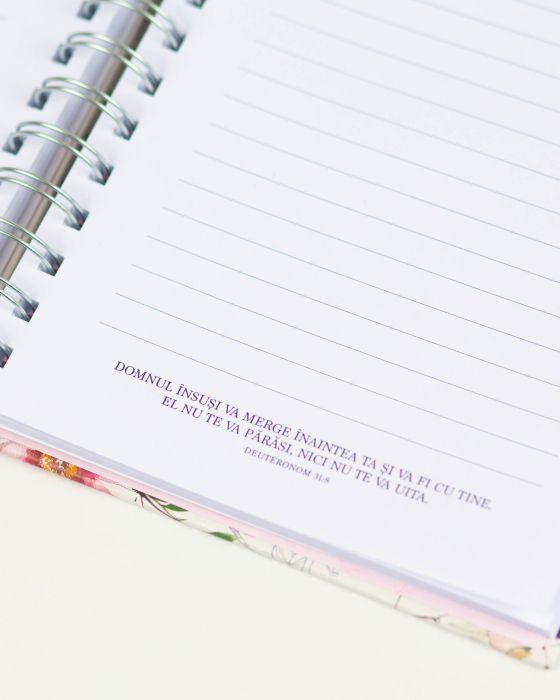 DOMNUL ÎNSUȘI VA MERGE ÎNAINTEA TA ȘI VA FI CU TINE.
EL NU TE VA PĂRĂSI, NICI NU TE VA UITA.
DEUTERONOM 31:8